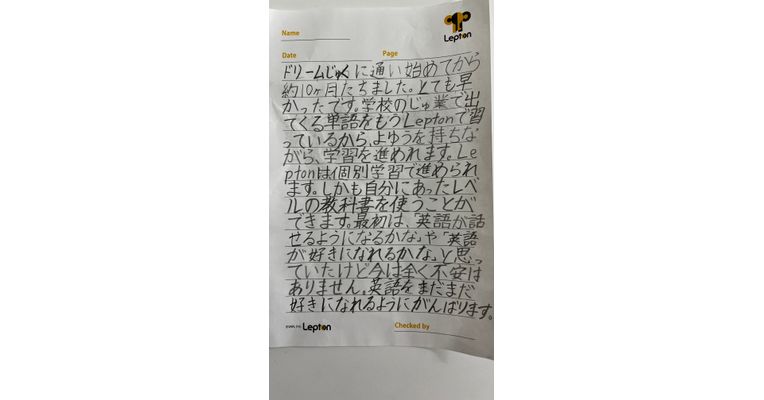 Lepton
Name
Date Page
ドリームじゅくに通い始めてから
約10ヶ月たちました。とても早
かったです。学校のじゅ業で出
てくる単語をもうLeptonで習
っているから、よゆうを持ちな
がら、学習を進めれます。Le
ptonは個別学習で進められ
ます。しかも自分にあったレベ
ルの教科書を使うことが
できます。最初は、「英語が話
せるようになるかな」や「英語
が好きになれるかな」と思っ
ていたけど今は全く不安は
ありません。英語をまだまだ
好きになれるようにがんばります。
Lepton Checked by